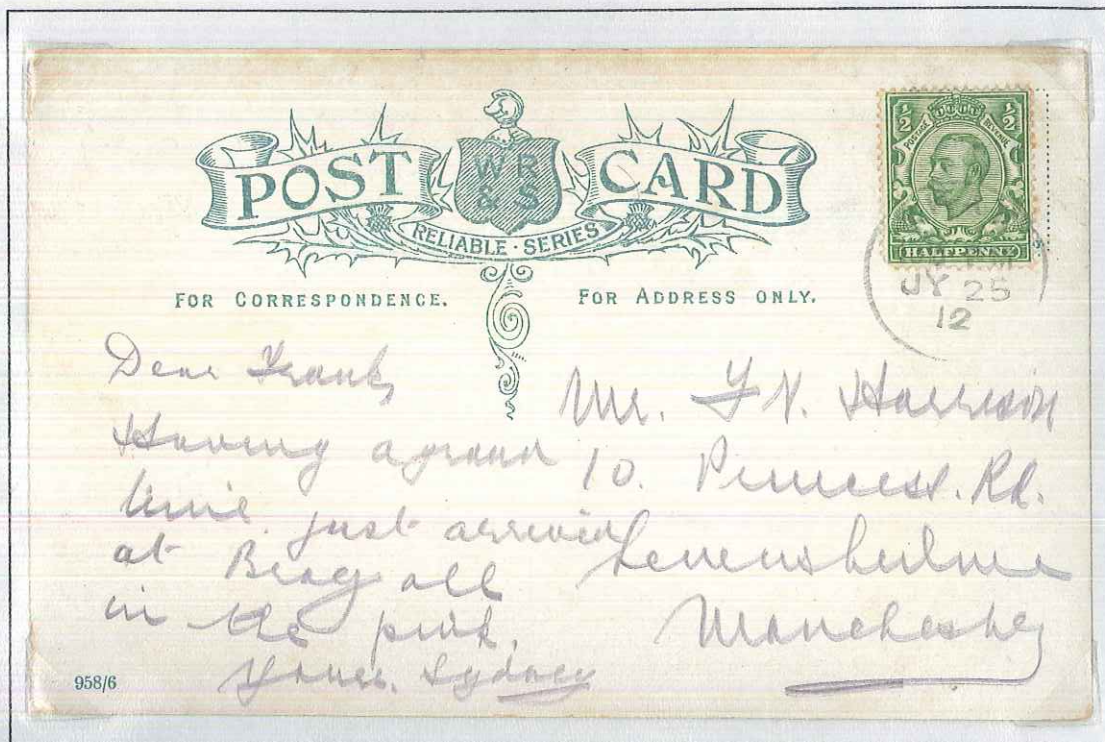 POST CARD
W R
& S
RELIABLE · SERIES
FOR CORRESPONDENCE.
FOR ADDRESS ONLY.
½ ½
POSTAGE REVENUE
HALFPENNY
JY 25
12
Dear Frank,
Having a grand
time just arrived
at Bray all
in the pink.
Yours, Sydney
Mr. F N. Harrison
10. Princess. Rd.
Levenshulme
Manchester
958/6